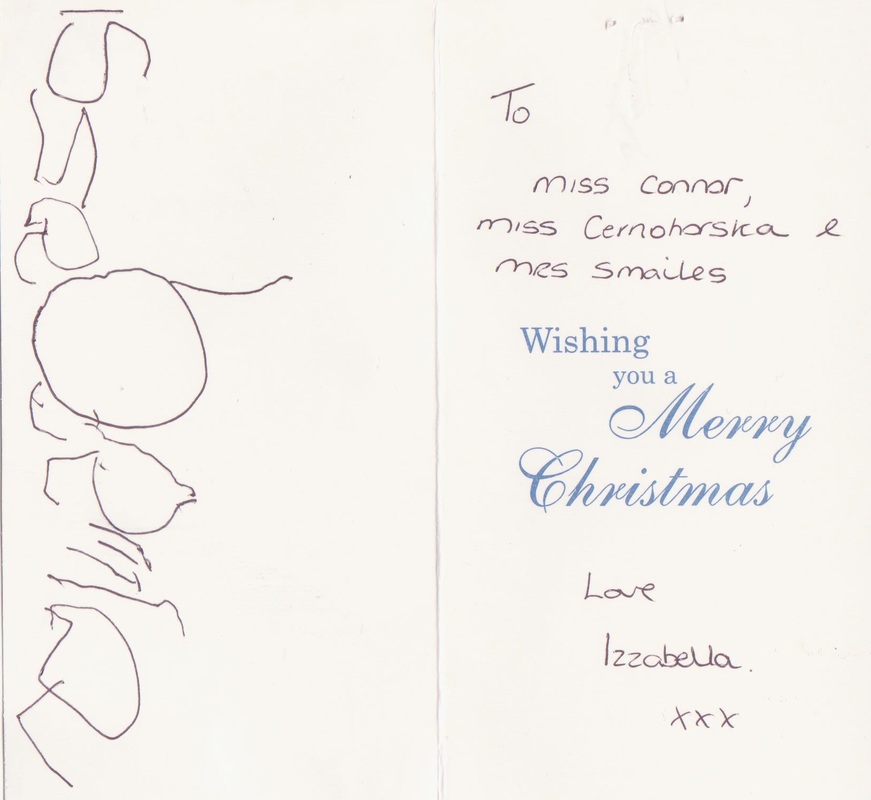 To
miss Connor,
miss Cernohorska &
mrs smailes
Wishing
you a
Merry
Christmas
Love
Izzabella.
xxx